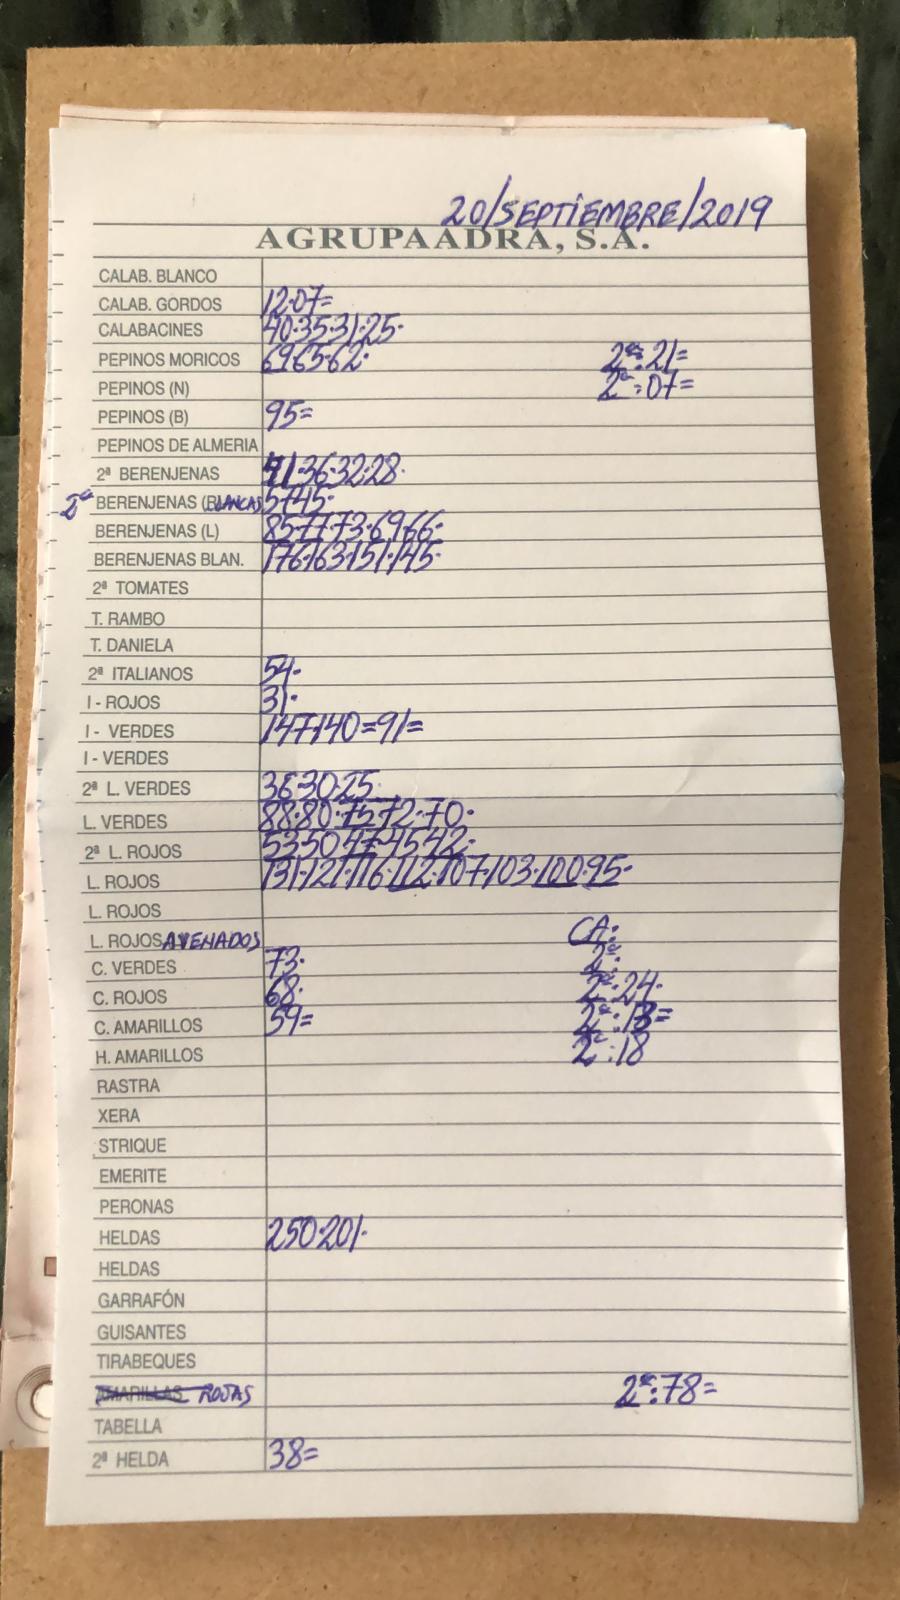 20/SEPTIEMBRE/2019
AGRUPAADRA, S.A.
CALAB. BLANCO
CALAB. GORDOS 12·07=
CALABACINES 40·35·31·25·
PEPINOS MORICOS 69·65·62· 2ª: 21=
PEPINOS (N) 2ª: 07=
PEPINOS (B) 95=
PEPINOS DE ALMERIA
2ª BERENJENAS 41·36·32·28·
2ª BERENJENAS (BLANCAS 57·45·
BERENJENAS (L) 85·77·73·69·66·
BERENJENAS BLAN. 176·163·151·145·
2ª TOMATES
T. RAMBO
T. DANIELA
2ª ITALIANOS 54·
I - ROJOS 31·
I - VERDES 147·140=91=
I - VERDES
2ª L. VERDES 36·30·25·
L. VERDES 88·80·75·72·70·
2ª L. ROJOS 53·50·47·45·42·
L. ROJOS 131·121·116·112·107·103·100·95·
L. ROJOS
L. ROJOS AVENADOS CA:
C. VERDES 73· 2ª:
C. ROJOS 68· 2ª: 24·
C. AMARILLOS 59= 2ª: 13=
H. AMARILLOS 2ª: 18
RASTRA
XERA
STRIQUE
EMERITE
PERONAS
HELDAS 250·201·
HELDAS
GARRAFÓN
GUISANTES
TIRABEQUES
AMARILLAS ROJAS 2ª: 78=
TABELLA
2ª HELDA 38=